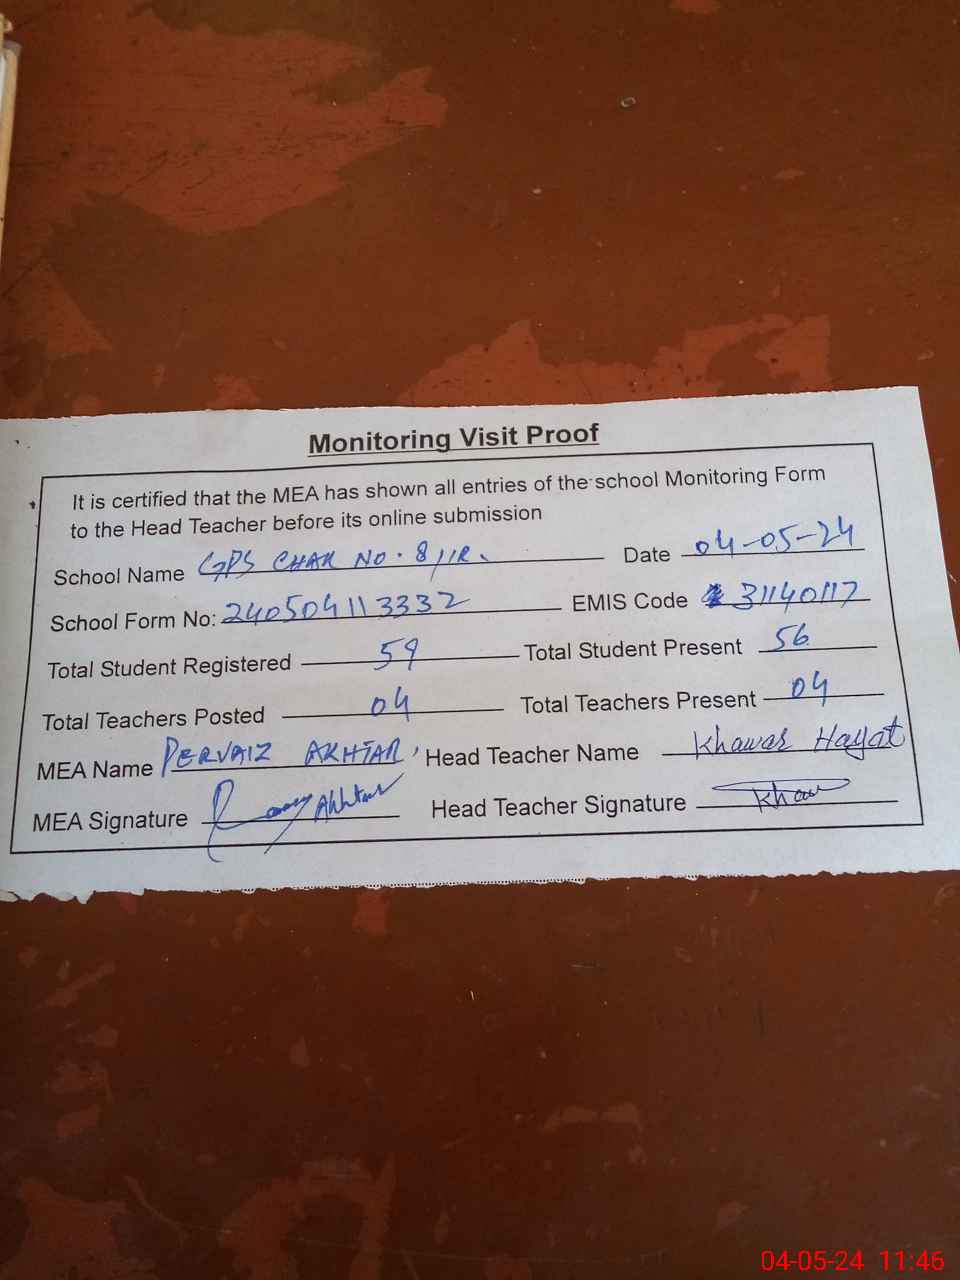 Monitoring Visit Proof
It is certified that the MEA has shown all entries of the school Monitoring Form
to the Head Teacher before its online submission
School Name GPS CHAK NO. 8/1R. Date 04-05-24
School Form No: 240504113332 EMIS Code 31140117
Total Student Registered 59 Total Student Present 56
Total Teachers Posted 04 Total Teachers Present 04
MEA Name PERVAIZ AKHTAR Head Teacher Name Khawar Hayat
MEA Signature Akhtar Head Teacher Signature Khaw
04-05-24 11:46